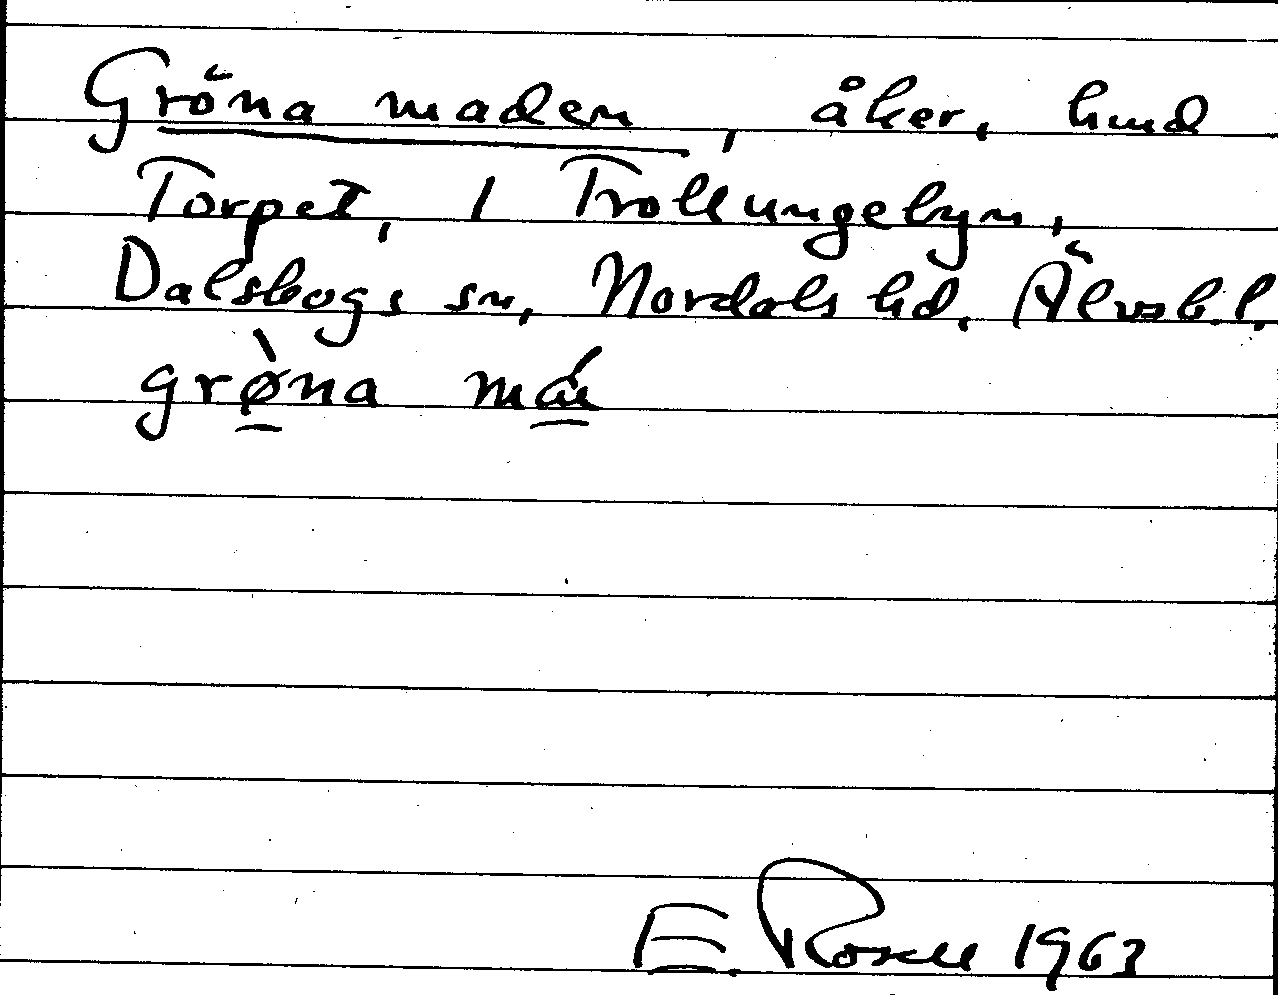 Gröna maden, åker, hmd
Torpet, 1 Trollungebyn,
Dalskogs sn, Nordals hd, Älvsb. l.
grø̀na
E. Rosell 1963